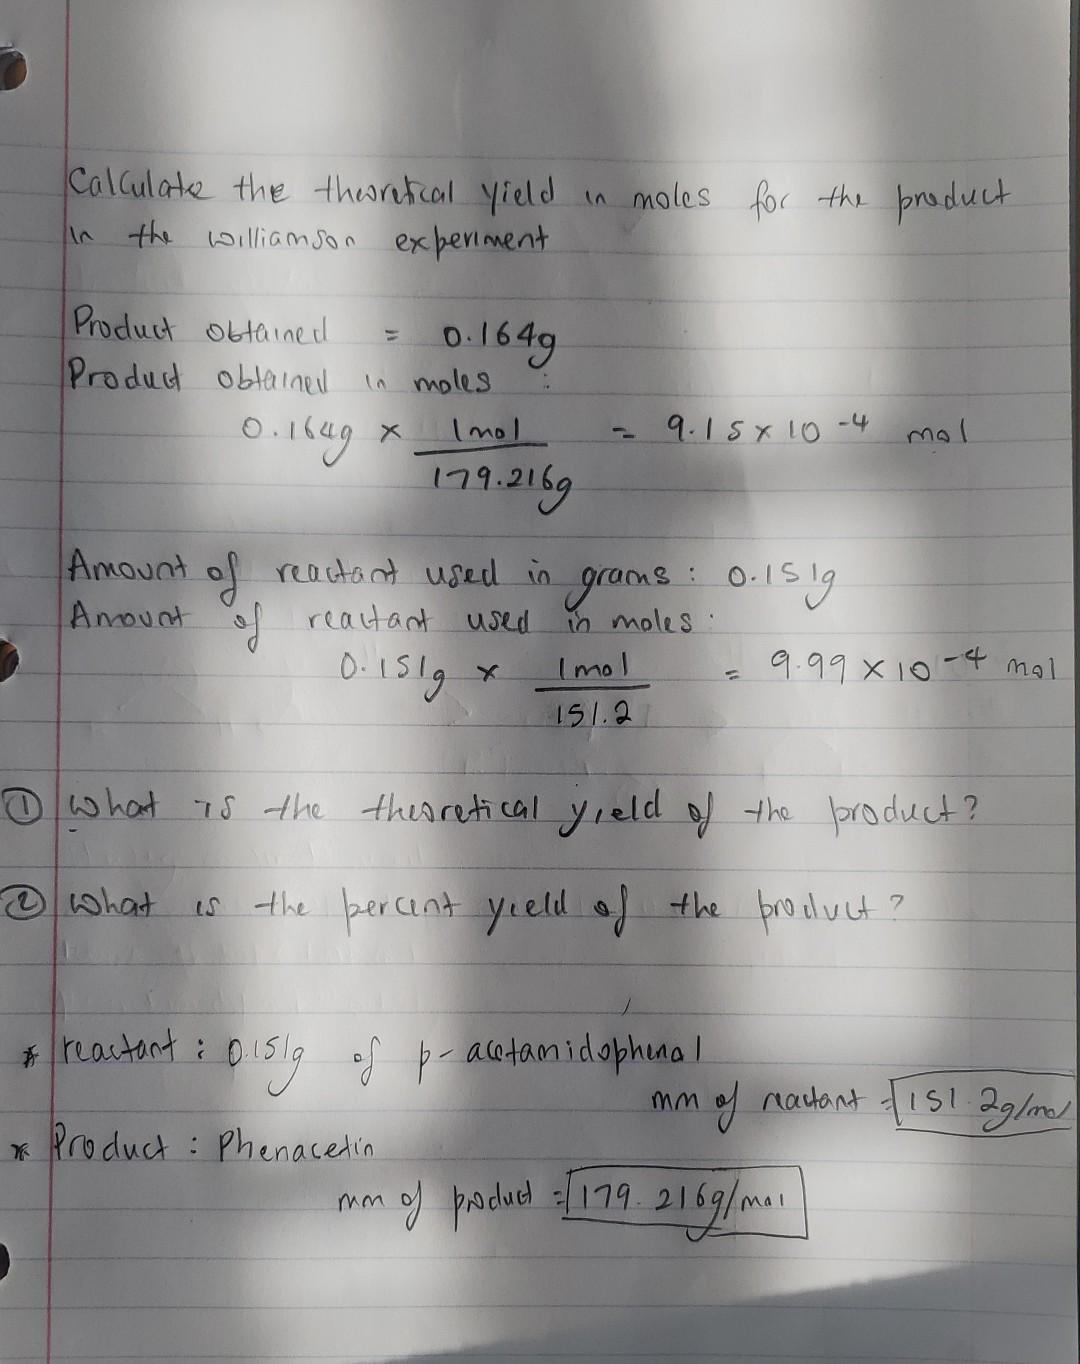 Calculate the theoretical yield in moles for the product
in the williamson experiment
Product obtained = 0.164g
Product obtained in moles :
0.164g × 1mol = 9.15 × 10 -4 mol
179.216g
Amount of reactant used in grams : 0.151g
Amount of reactant used in moles :
0.151g × 1mol = 9.99 × 10 -4 mol
151.2
① What is the theoretical yield of the product?
② What is the percent yield of the product?
* reactant : 0.151g of p-acetamidophenol
mm of reactant = 151.2g/mol
* Product : Phenacetin
mm of product = 179.216g/mol